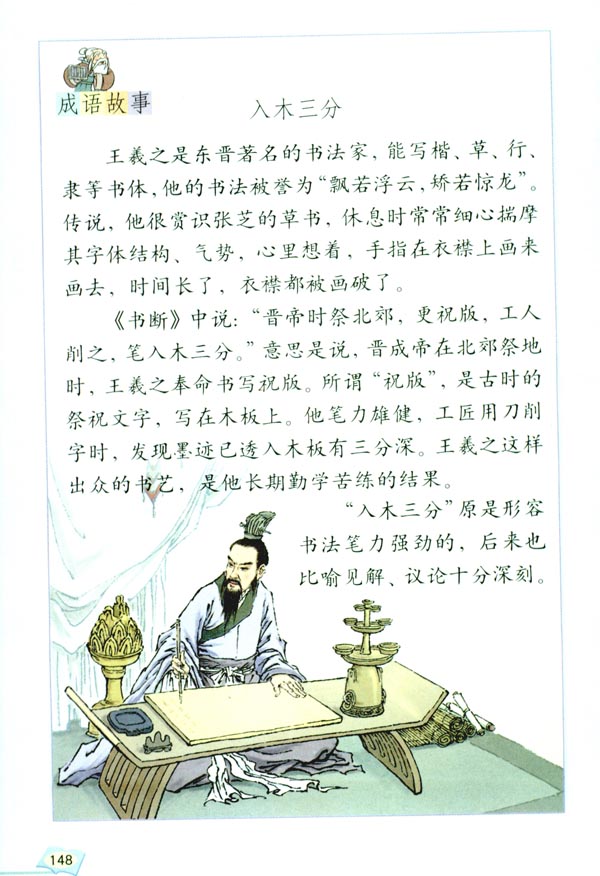 成语故事
入木三分
王羲之是东晋著名的书法家，能写楷、草、行、
隶等书体，他的书法被誉为“飘若浮云，矫若惊龙”。
传说，他很赏识张芝的草书，休息时常常细心揣摩
其字体结构、气势，心里想着，手指在衣襟上画来
画去，时间长了，衣襟都被画破了。
《书断》中说：“晋帝时祭北郊，更祝版，工人
削之，笔入木三分。”意思是说，晋成帝在北郊祭地
时，王羲之奉命书写祝版。所谓“祝版”，是古时的
祭祝文字，写在木板上。他笔力雄健，工匠用刀削
字时，发现墨迹已透入木板有三分深。王羲之这样
出众的书艺，是他长期勤学苦练的结果。
“入木三分”原是形容
书法笔力强劲的，后来也
比喻见解、议论十分深刻。
148